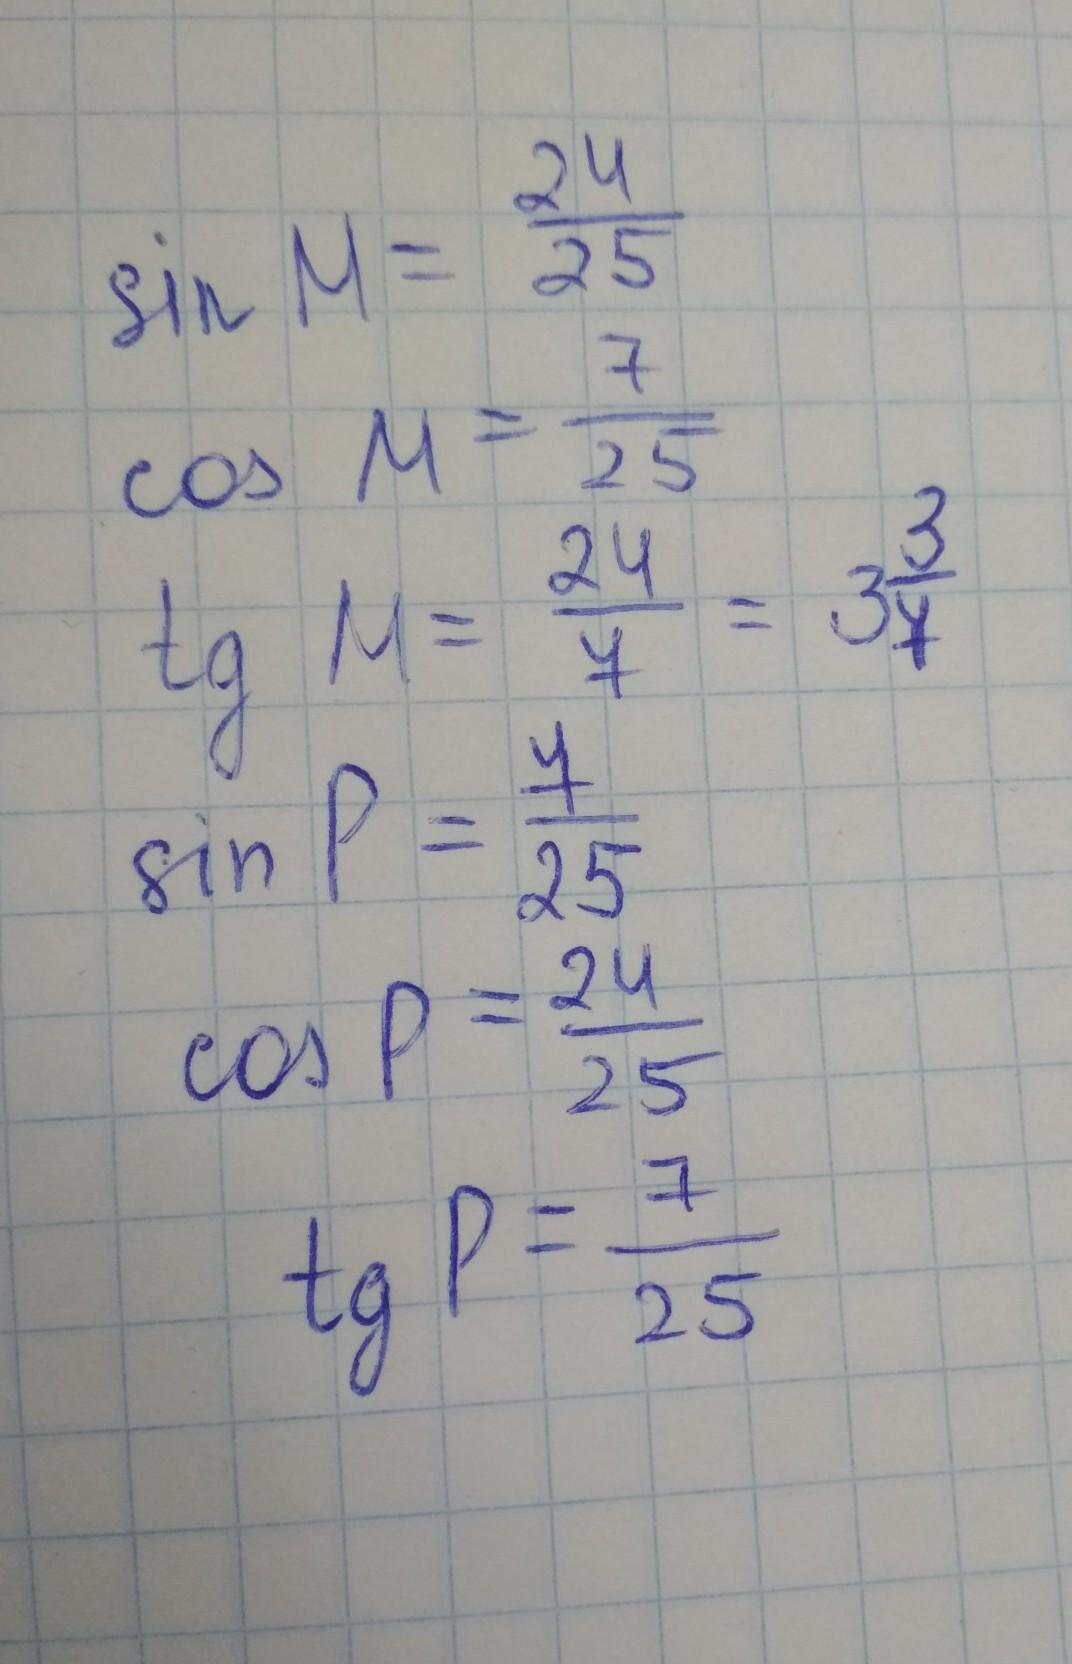 sin M = 24/25
cos M = 7/25
tg M = 24/7 = 3 3/7
sin P = 7/25
cos P = 24/25
tg P = 7/25